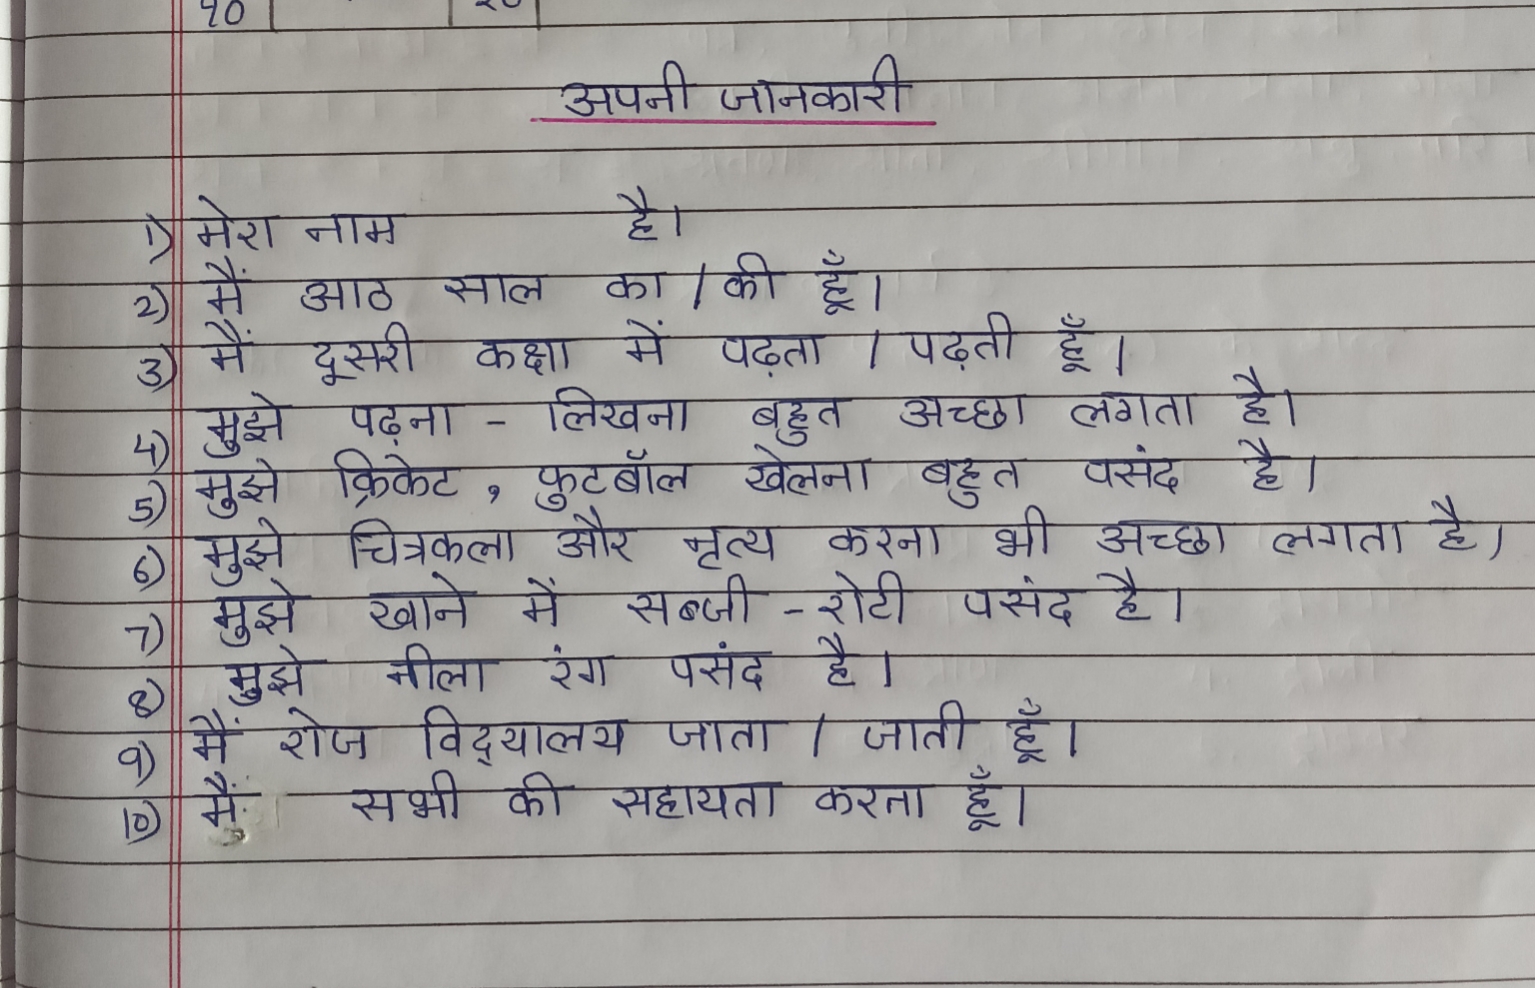 अपनी जानकारी
1) मेरा नाम है।
2) मैं आठ साल का / की हूँ।
3) मैं दूसरी कक्षा में पढ़ता / पढ़ती हूँ।
4) मुझे पढ़ना - लिखना बहुत अच्छा लगता है।
5) मुझे क्रिकेट, फुटबॉल खेलना बहुत पसंद है।
6) मुझे चित्रकला और नृत्य करना भी अच्छा लगता है।
7) मुझे खाने में सब्जी - रोटी पसंद है।
8) मुझे नीला रंग पसंद है।
9) मैं रोज विद्यालय जाता / जाती हूँ।
10) मैं सभी की सहायता करता हूँ।